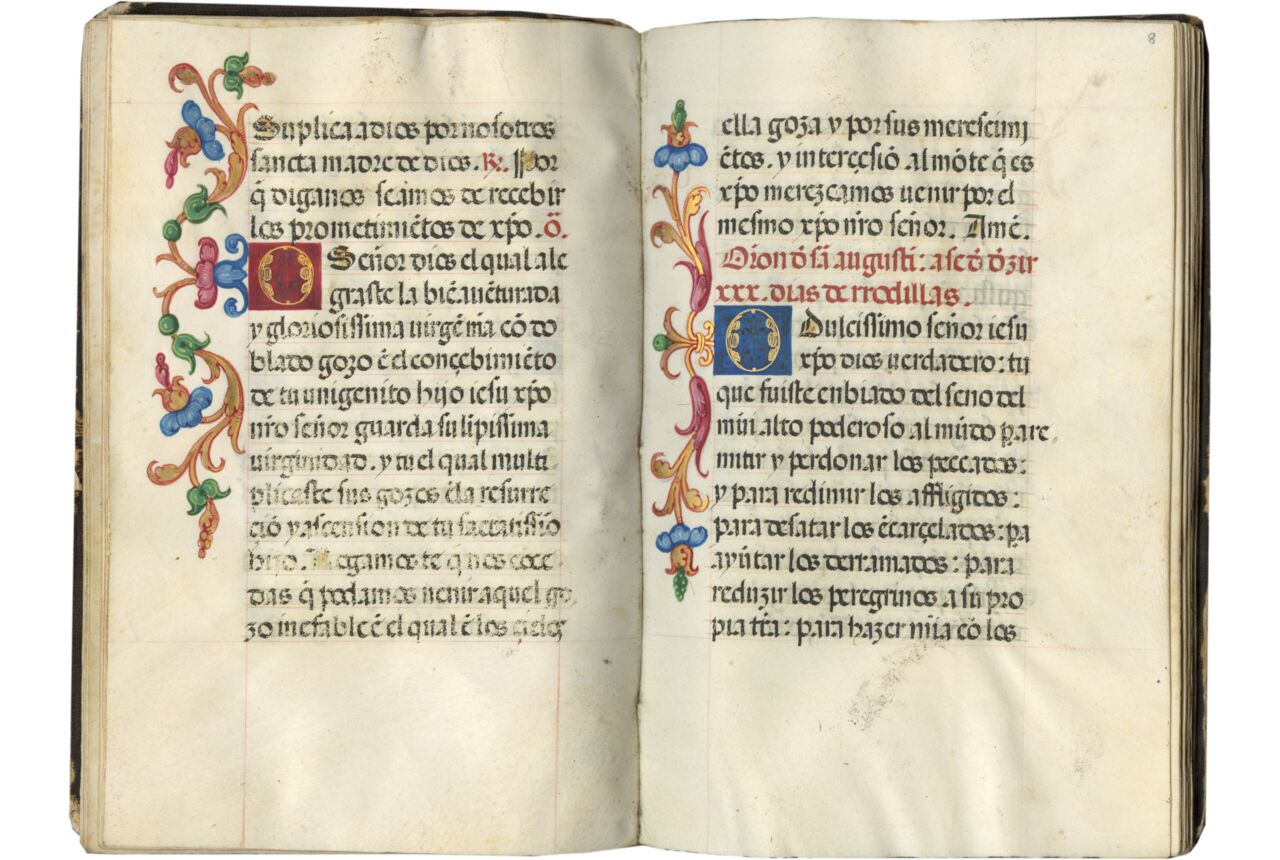 Suplica a dios por nosotros
sancta madre de dios. R̃. Por
q̃ diganos seamos de recebir
los prometimiẽtos de xp̃o. õ.
O Señor dios el qual ale
graste la biẽ auẽturada
y gloriosissima uirgẽ mã cõ do
blado gozo ẽ el conçebimiẽto
de tu unigenito hijo iesu xp̃o
nr̃o señor guarda su lipissima
uirginidad. y tu el qual multi
plicaste sus gozos ẽ la resurre
ciõ y ascension de tu sacratissĩo
hijo. Rogamos te q̃ nos cõce
das q̃ podamos uenir a quel go
zo inefable ẽ el qual ẽ los çielos
8
ella goza y por sus merescimi
ẽtos. y interçessiõ al mõte q̃ es
xp̃o merezcamos uenir por el
mesmo xp̃o nr̃o señor. Amẽ.
Oriõn đ sã augustĩ: a se đ đzir
xxx. dias de rrodillas.
O Dulcissimo señor iesu
xp̃o dios uerdadero: tu
que fuiste enbiado del seno del
mũi alto poderoso al mũdo ꝑa re
mitir y perdonar los peccados:
y para redimir los affligidos:
para desatar los ẽcarçelados: ꝑa
ayũtar los derramados: ꝑara
reduzir los peregrinos a su pro
pia trr̃a: para hazer mĩa cõ los